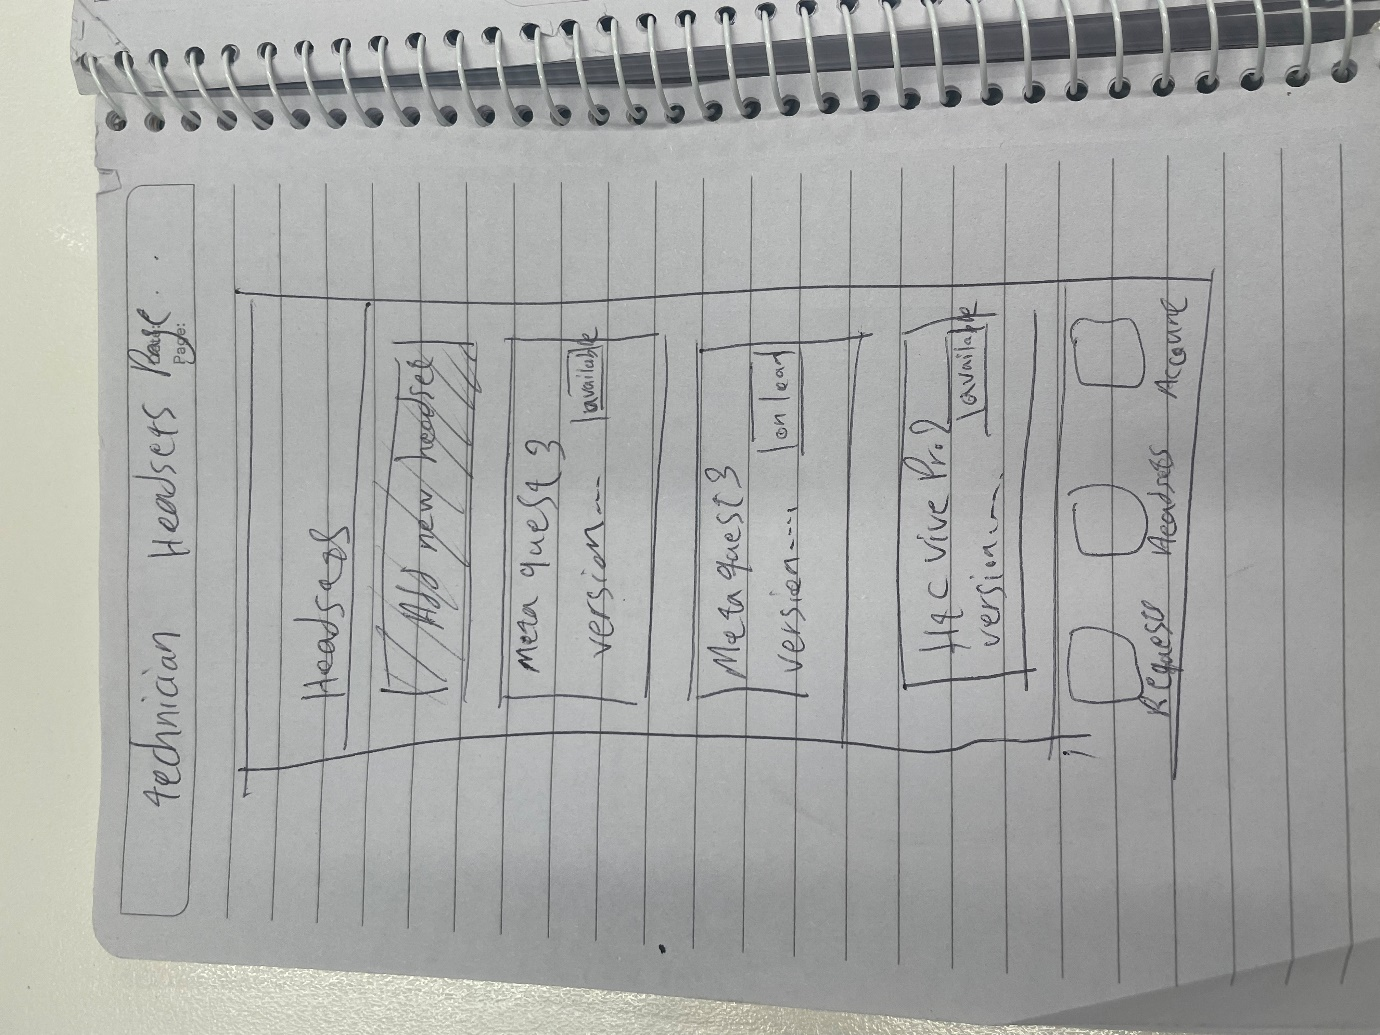 technician Headsets Page..
Page:
Headsets
Add new headset
Meta quest 3
version...
available
Meta quest 3
version...
on loan
Htc vive Pro2
version...
available
Request Headsets Account